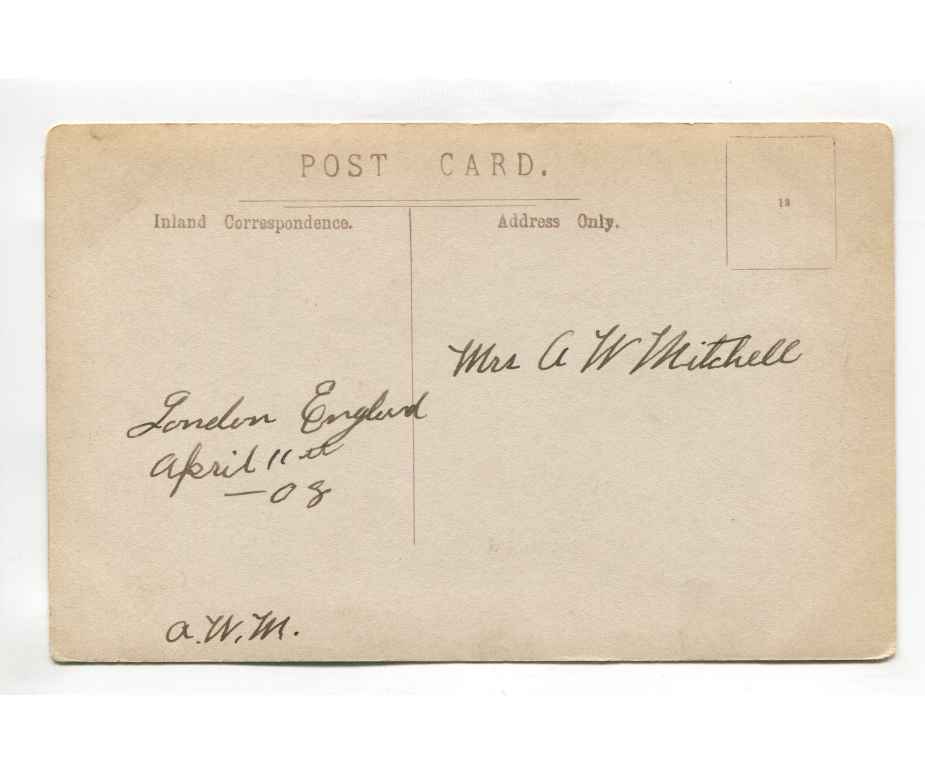 POST CARD.
Inland Correspondence.
Address Only.
Mrs A W Mitchell
London England
April 11th
—08
A.W.M.